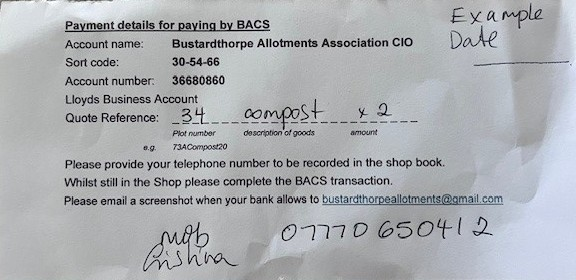 Payment details for paying by BACS
Example
Date
Account name: Bustardthorpe Allotments Association CIO
Sort code: 30-54-66
Account number: 36680860
Lloyds Business Account
Quote Reference: 34 compost x 2
Plot number description of goods amount
e.g. 73ACompost20
Please provide your telephone number to be recorded in the shop book.
Whilst still in the Shop please complete the BACS transaction.
Please email a screenshot when your bank allows to bustardthorpeallotments@gmail.com
mob 07770 650412